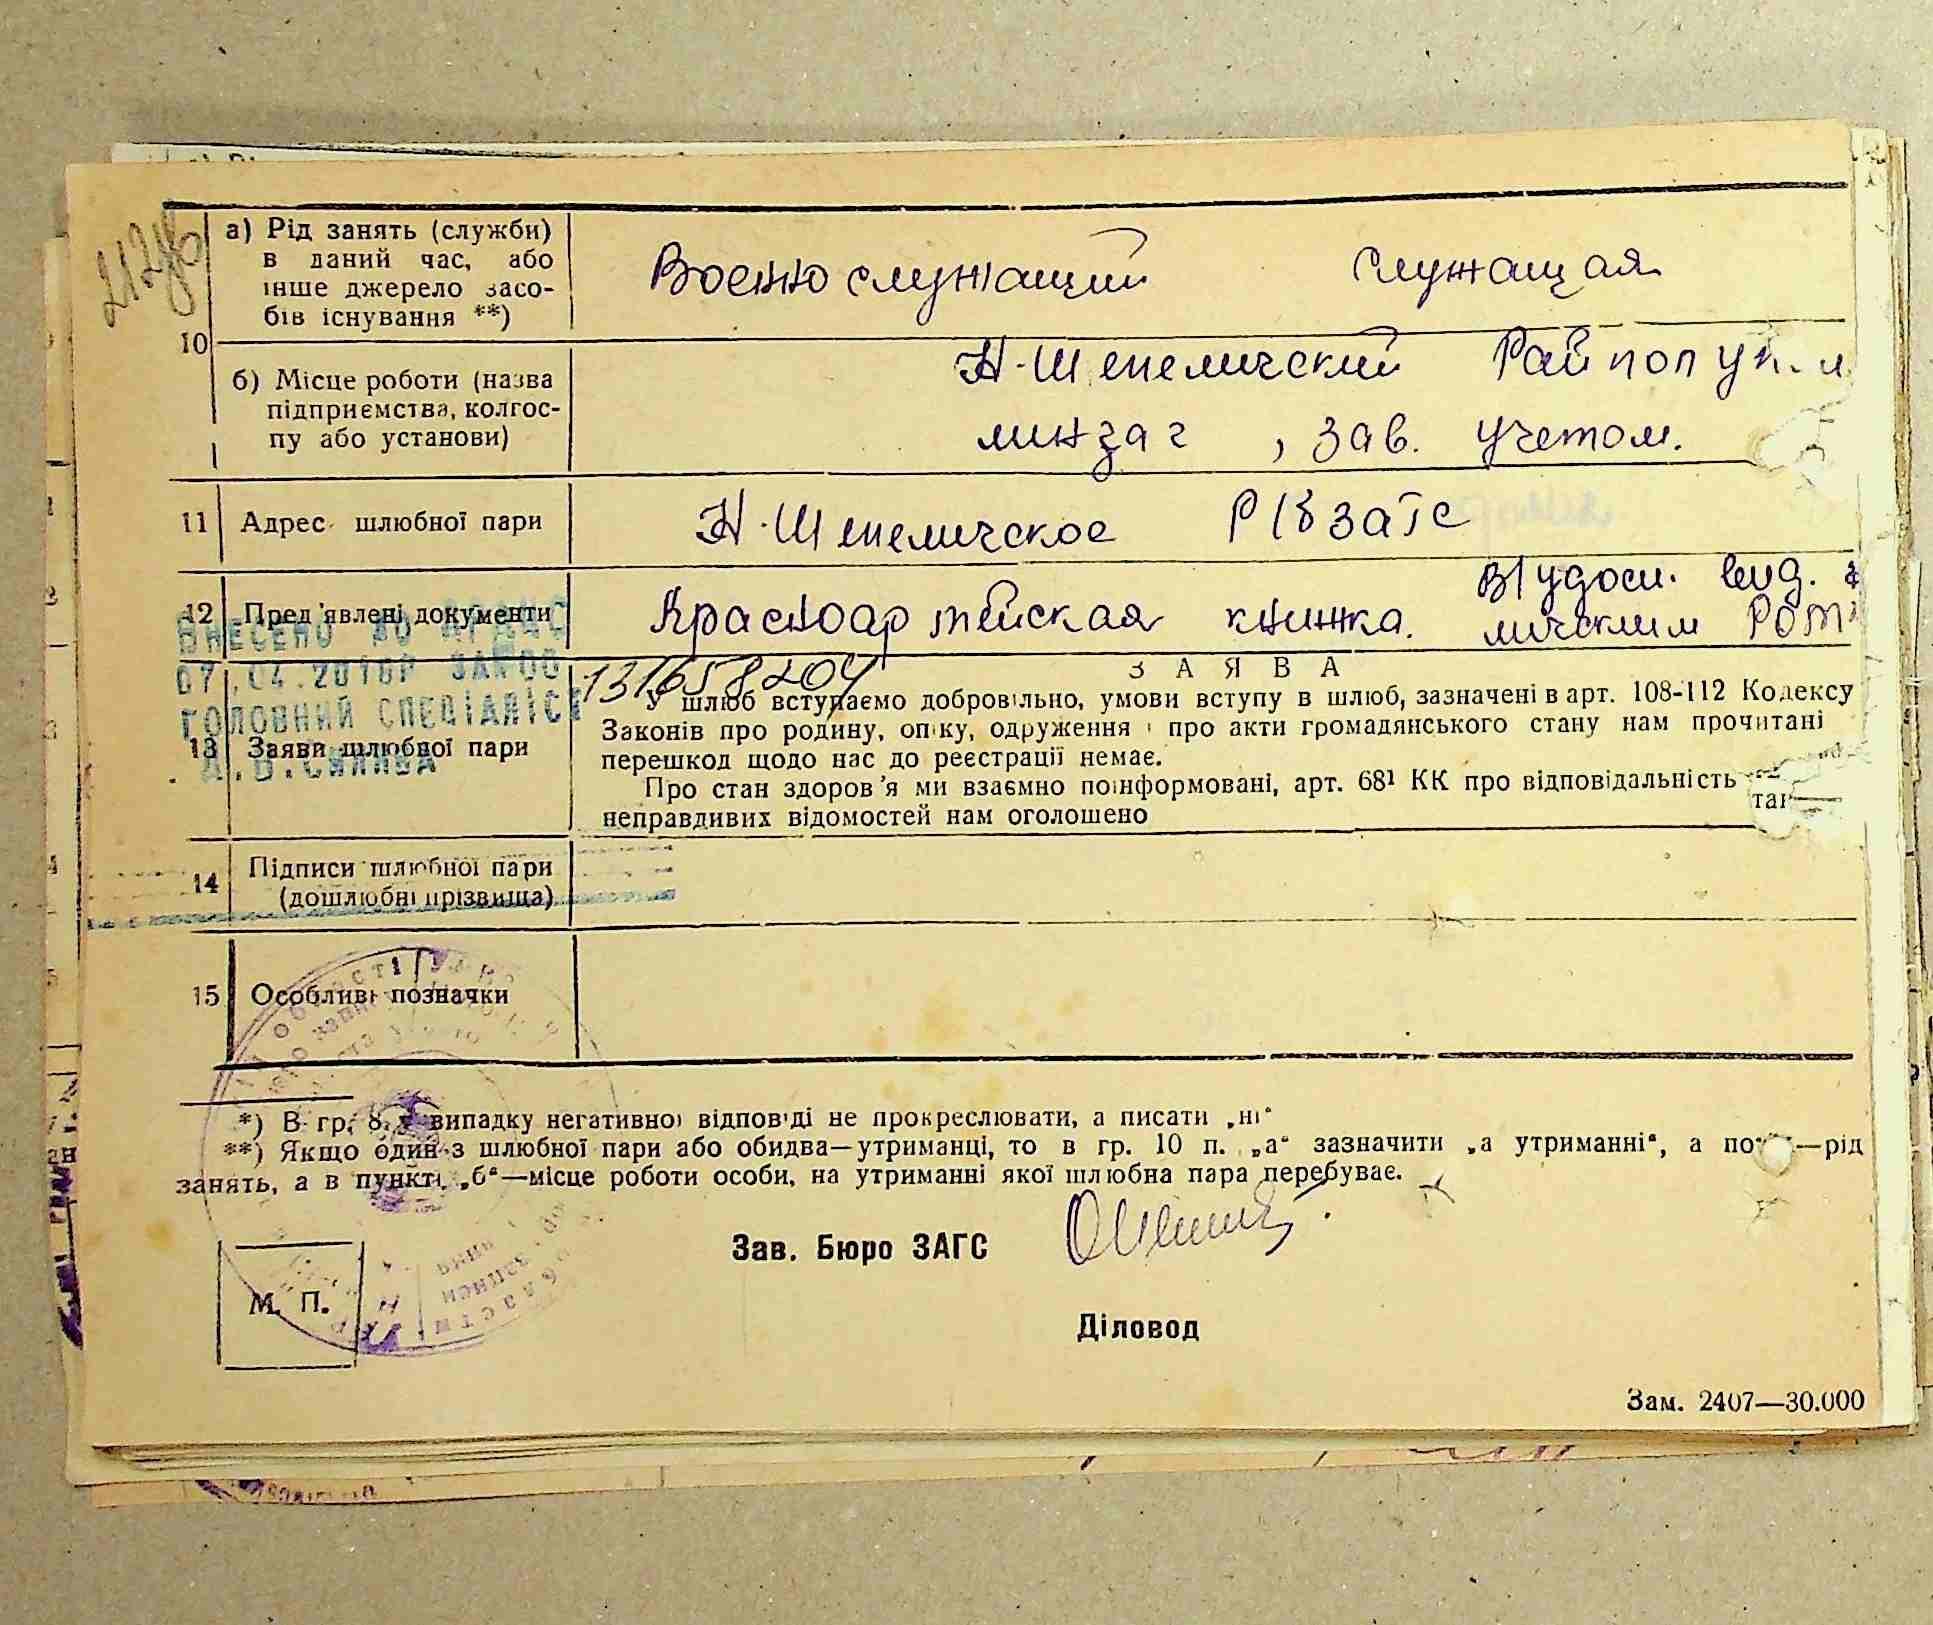 а) Рід занять (служби)
в даний час, або
інше джерело засо-
бів існування **)
Военнослужащий Служащая
10
б) Місце роботи (назва
підприємства, колгос-
пу або установи)
Н-Шепеличский Райполуп. и
минзаг , зав. учетом.
11 Адрес шлюбної пари
Н-Шепеличское Р/бзагс
12 Пред'явлені документи
Красноармейская книжка.
В/удост. выд.
личским
ВНЕСЕНО ДО ДРАЦС
07.04.2016Р
ГОЛОВНИЙ СПЕЦІАЛІСТ
131658204
ЗАЯВА
13 Заяви шлюбної пари
У шлюб вступаємо добровільно, умови вступу в шлюб, зазначені в арт. 108-112 Кодексу
Законів про родину, опіку, одруження і про акти громадянського стану нам прочитані
перешкод щодо нас до реєстрації немає.
Про стан здоров'я ми взаємно поінформовані, арт. 68¹ КК про відповідальність
неправдивих відомостей нам оголошено
14 Підписи шлюбної пари
(дошлюбні прізвища)
15 Особливі позначки
*) В гр. 8 у випадку негативної відповіді не прокреслювати, а писати „ні“
**) Якщо один з шлюбної пари або обидва—утриманці, то в гр. 10 п. „а“ зазначити „а утриманні“, а —рід
занять, а в пункті „б“—місце роботи особи, на утриманні якої шлюбна пара перебуває.
Зав. Бюро ЗАГС
М. П.
Діловод
Зам. 2407—30.000